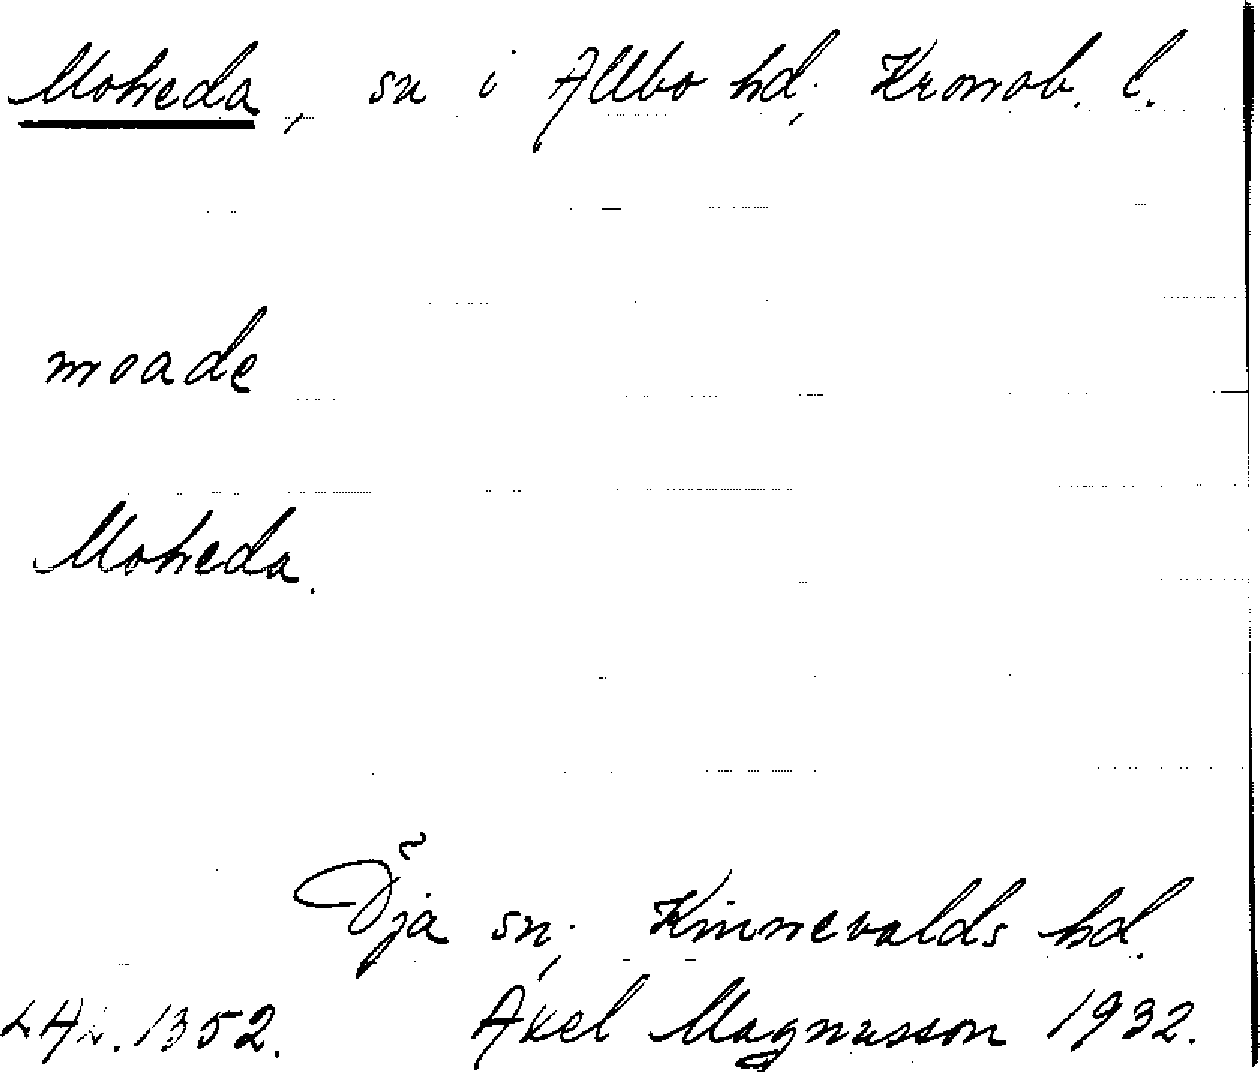 Moheda, sn i Allbo hd, Kronob. l.
moade
Moheda.
Öja sn, Kinnevalds hd.
1352. Axel Magnusson 1932.